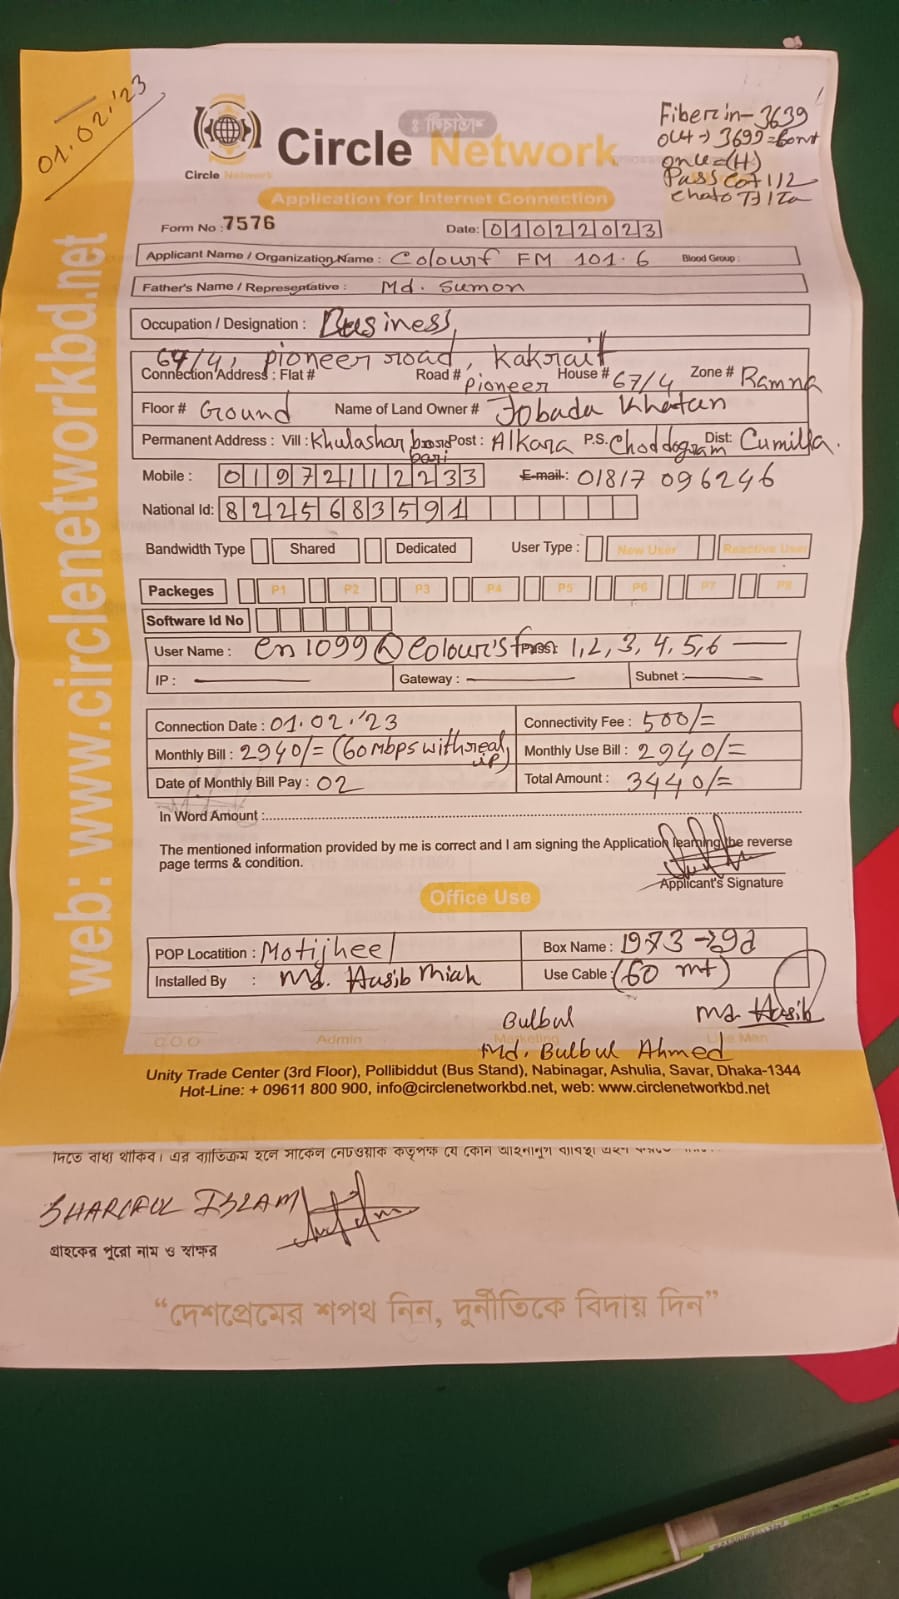 01.02.'23
Fiber in - 3639
out → 3699 =
Circle Network
Circle Network
Application for Internet Connection
Form No : 7576
Date: 01022023
Applicant Name / Organization Name : Colourf FM 101.6 Blood Group :
Father's Name / Representative : Md. Sumon
Occupation / Designation : Business
67/4, pioneer road, Kakrail
Connection Address : Flat # Road # pioneer House # 67/4 Zone # Ramna
Floor # Ground Name of Land Owner # Jobada Khatun
Permanent Address : Vill : Khulashar bari Post : Alkara P.S. Choddogram Dist: Cumilla.
Mobile : 01972112233 E-mail: 01817 096246
National Id: 8225683591
Bandwidth Type Shared Dedicated User Type : New User Reactive User
Packeges P1 P2 P3 P4 P5 P6 P7 P8
Software Id No
User Name : cn1099@colour's 1,2,3,4,5,6
IP : Gateway : Subnet :
Connection Date : 01.02.'23 Connectivity Fee : 500/=
Monthly Bill : 2940/= (60 Mbps with real ip) Monthly Use Bill : 2940/=
Date of Monthly Bill Pay : 02 Total Amount : 3440/=
In Word Amount :
The mentioned information provided by me is correct and I am signing the Application learning the reverse
page terms & condition.
Applicant's Signature
Office Use
POP Locatition : Motijheel Box Name :
Installed By : Md. Hasib Miah Use Cable : (60 mt)
Bulbul Md. Hasib
C.O.O Admin Marketing Line Man
Md. Bulbul Ahmed
Unity Trade Center (3rd Floor), Pollibiddut (Bus Stand), Nabinagar, Ashulia, Savar, Dhaka-1344
Hot-Line: + 09611 800 900, info@circlenetworkbd.net, web: www.circlenetworkbd.net
web: www.circlenetworkbd.net
দিতে বাধ্য থাকিব। এর ব্যতিক্রম হলে সার্কেল নেটওয়ার্ক কতৃপক্ষ যে কোন আইনানুগ ব্যবস্থা
SHARIFUL ISLAM
গ্রাহকের পুরো নাম ও স্বাক্ষর
“দেশপ্রেমের শপথ নিন, দুর্নীতিকে বিদায় দিন”